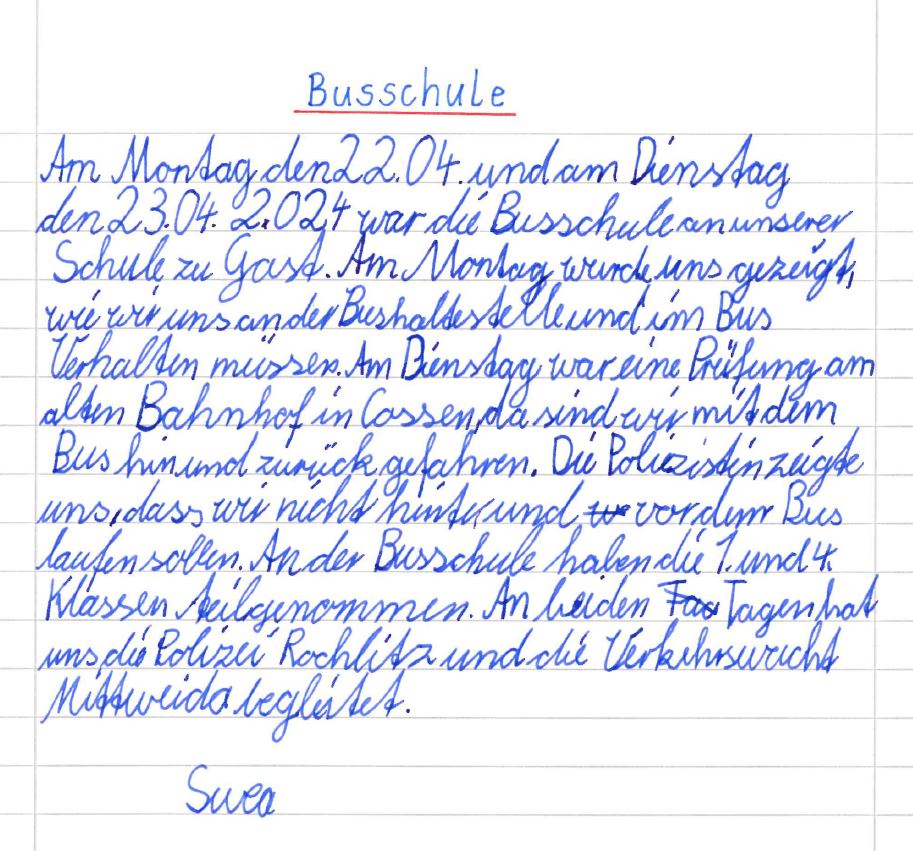 Busschule
Am Montag den 22.04. und am Dienstag
den 23.04. 2.024 war die Busschule an unserer
Schule zu Gast. Am Montag wurde uns gezeigt,
wie wir uns an der Bushaltestelle und im Bus
Verhalten müssen. Am Dienstag war eine Prüfung am
alten Bahnhof in Cossen, da sind wir mit dem
Bus hin und zurück gefahren. Die Polizistin zeigte
uns, dass wir nicht hinter und vor dem Bus
laufen sollen. An der Busschule haben die 1. und 4.
Klassen teilgenommen. An beiden Tagen hat
uns die Polizei Rochlitz und die Verkehrswacht
Mittweida begleitet.
Swea